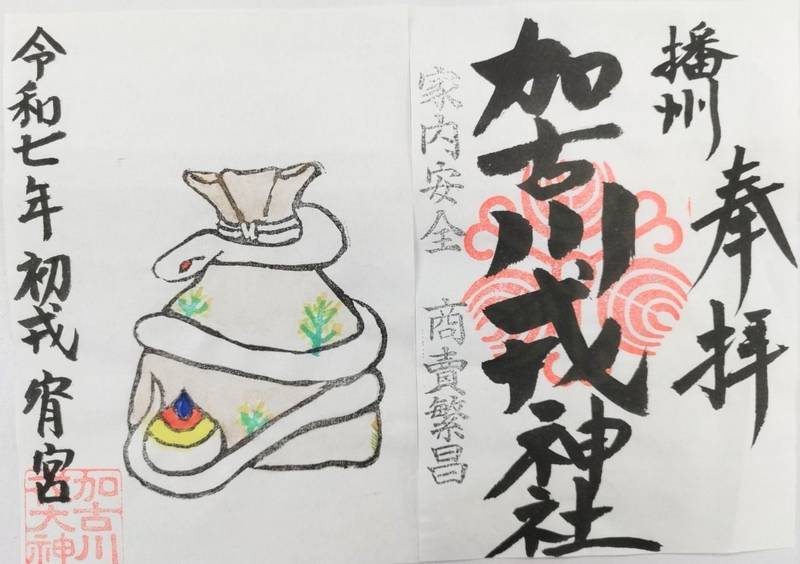 奉拝
播州
加古川戎神社
家内安全 商賣繁昌
令和七年 初戎 宵宮
加古川
戎大神